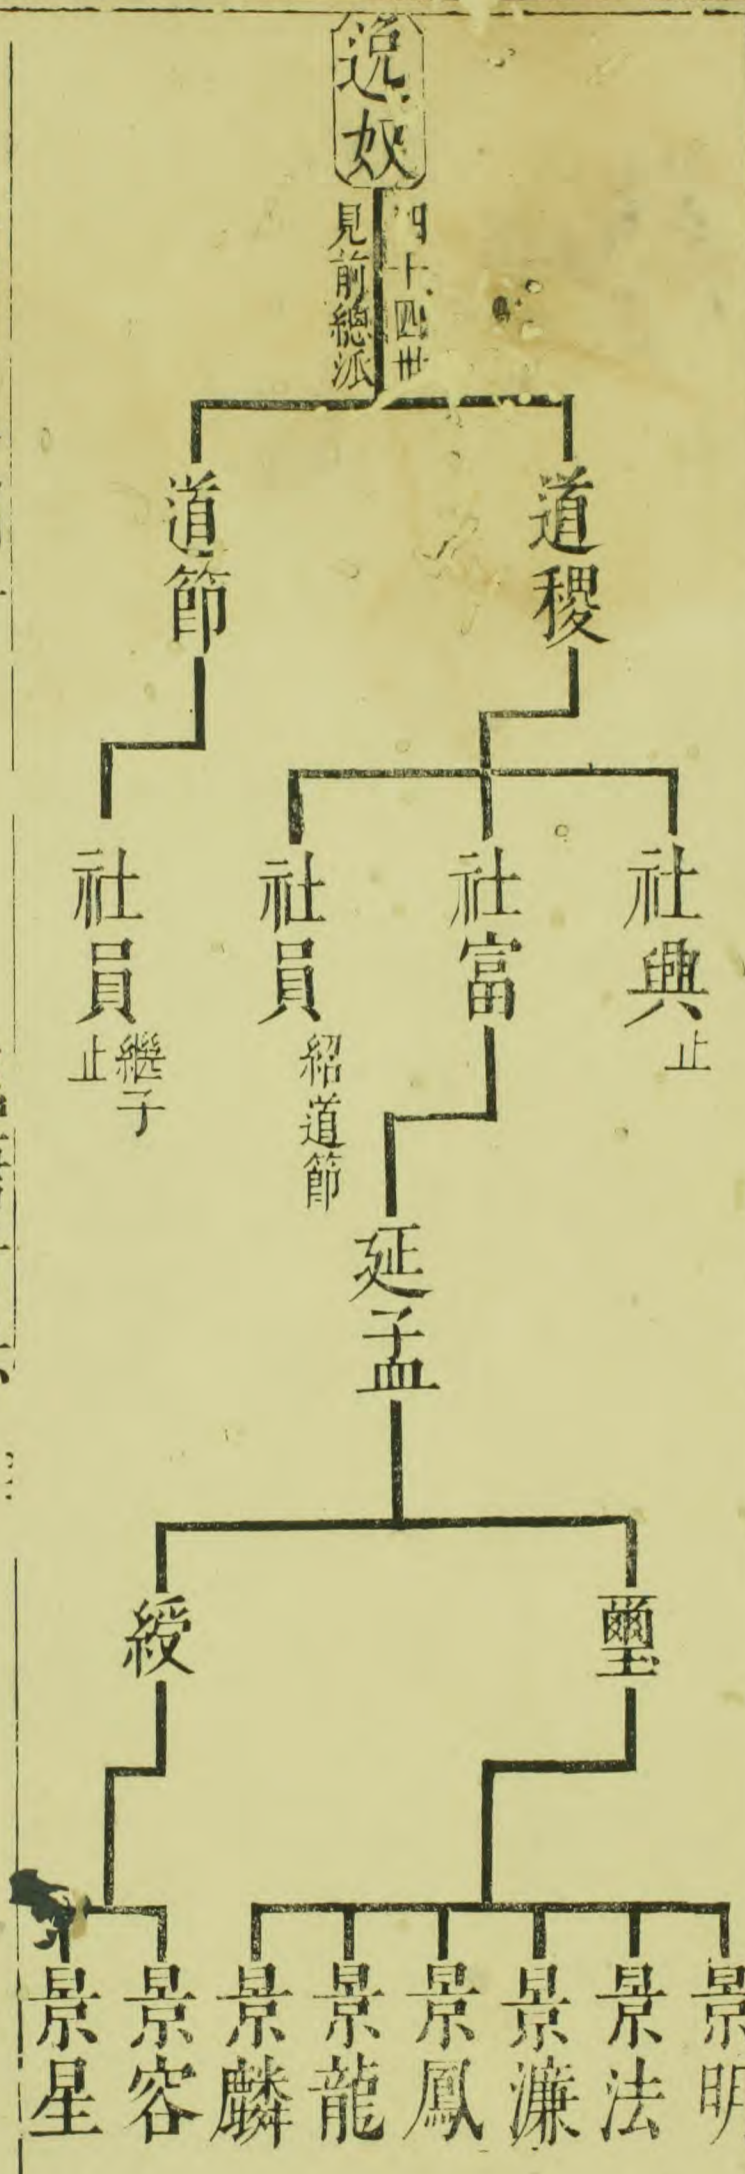 逸奴
四十四世
見前總派
道稷
道節
社興 止
社富
社員 紹道節
社員 繼子 止
延孟
璽
綬
景明
景法
景濂
景鳳
景龍
景麟
景容
景星